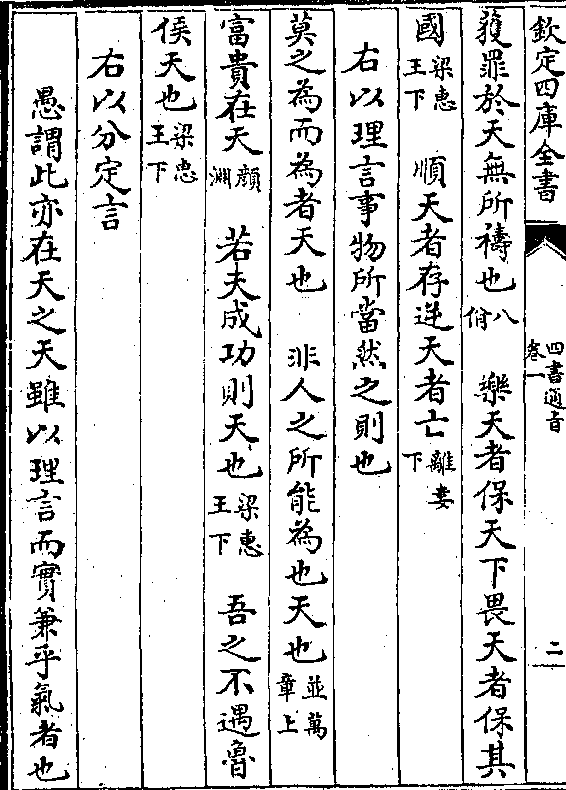 欽定四庫全書
四書通旨
卷一
二
獲罪於天無所禱也八佾　樂天者保天下畏天者保其
國梁惠王下　順天者存逆天者亡離婁下
右以理言事物所當然之則也
莫之為而為者天也　非人之所能為也天也並萬章上
富貴在天顔淵　若夫成功則天也梁惠王下　吾之不遇魯
侯天也梁惠王下
右以分定言
愚謂此亦在天之天雖以理言而實兼乎氣者也